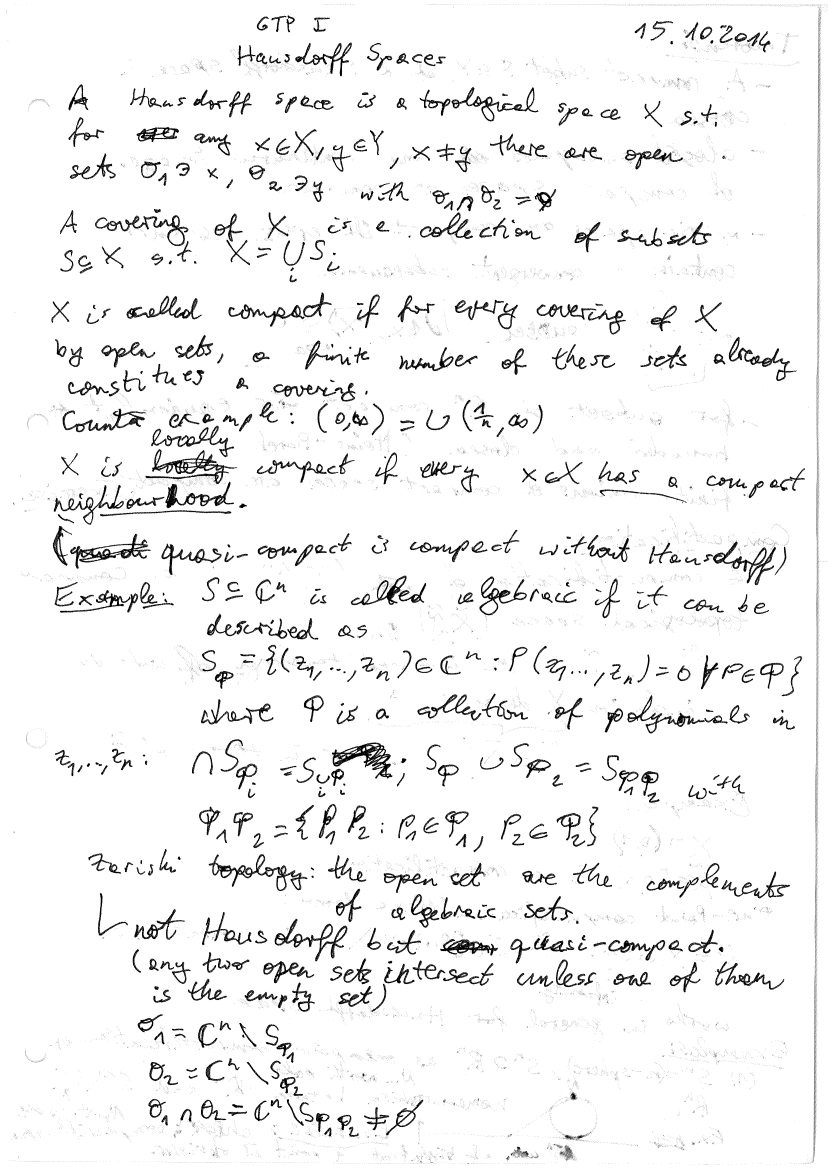 GTP I
15.10.2014
Hausdorff Spaces
A Hausdorff space is a topological space X s.t.
for any x∈X, y∈Y, x≠y there are open
sets O₁∋x, O₂∋y with O₁∩O₂=∅
A covering of X is a collection of subsets
S⊆X s.t. X=⋃ᵢSᵢ
X is called compact if for every covering of X
by open sets, a finite number of these sets already
constitues a covering.
Counter example: (0,∞) = ∪(1/n,∞)
locally
X is compact if every x∈X has a compact
neighbourhood.
(quasi-compact is compact without Hausdorff)
Example: S⊆ℂⁿ is called algebraic if it can be
described as
S_φ = {(z₁,...,zₙ)∈ℂⁿ : P(z₁...,zₙ)=0 ∀P∈φ}
where φ is a collection of polynomials in
z₁,...,zₙ: ∩S_φᵢ = S_∪φᵢ ; S_φ ∪ S_φ₂ = S_φ₁φ₂ with
φ₁φ₂ = {P₁P₂ : P₁∈φ₁, P₂∈φ₂}
Zariski topology: the open set are the complements
of algebraic sets.
not Hausdorff but quasi-compact.
(any two open sets intersect unless one of them
is the empty set)
O₁ = ℂⁿ\S_φ₁
O₂ = ℂⁿ\S_φ₂
O₁∩O₂ = ℂⁿ\S_φ₁φ₂ ≠ ∅